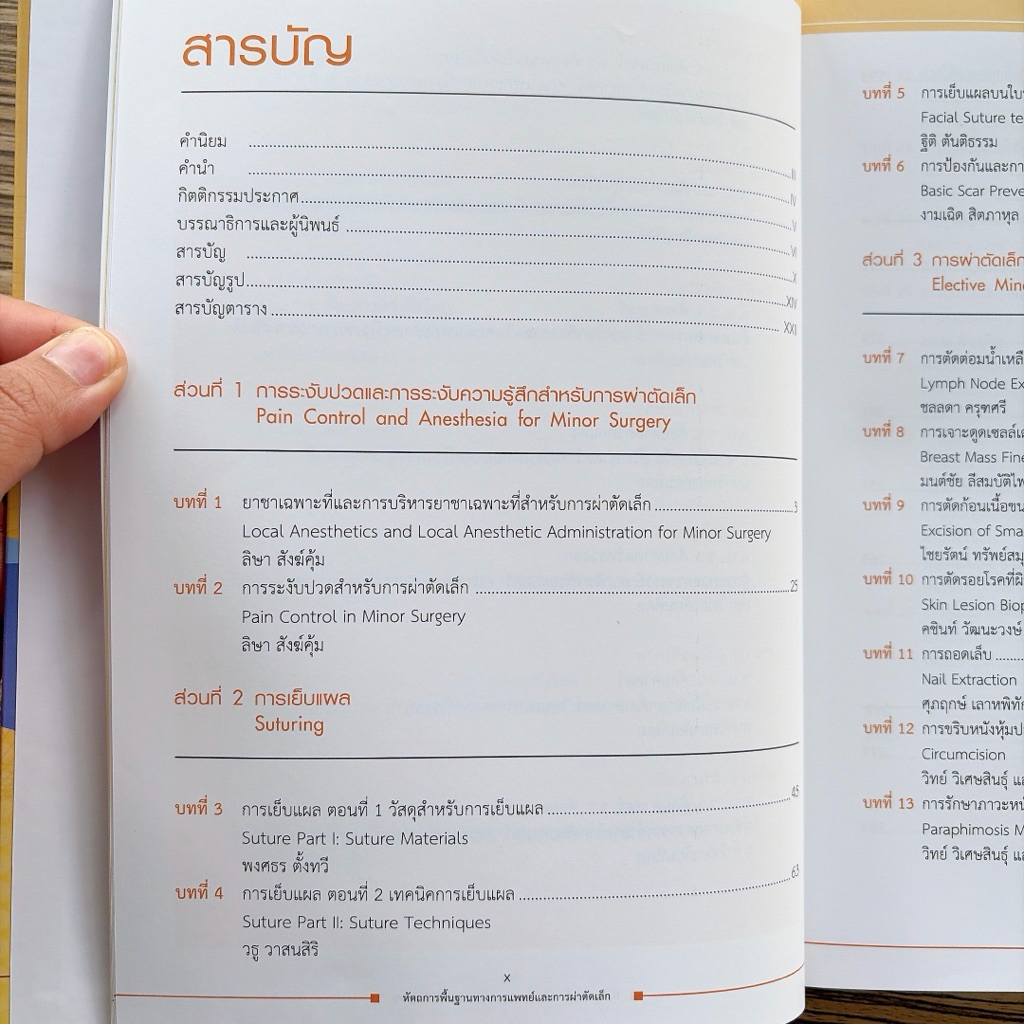 สารบัญ
คำนิยม ........ III
คำนำ ........ IV
กิตติกรรมประกาศ ........ V
บรรณาธิการและผู้นิพนธ์ ........ VI
สารบัญ ........ X
สารบัญรูป ........ XIV
สารบัญตาราง ........ XXI
ส่วนที่ 1 การระงับปวดและการระงับความรู้สึกสำหรับการผ่าตัดเล็ก
Pain Control and Anesthesia for Minor Surgery
บทที่ 1 ยาชาเฉพาะที่และการบริหารยาชาเฉพาะที่สำหรับการผ่าตัดเล็ก ........ 3
Local Anesthetics and Local Anesthetic Administration for Minor Surgery
ลิษา สังฆ์คุ้ม
บทที่ 2 การระงับปวดสำหรับการผ่าตัดเล็ก ........ 25
Pain Control in Minor Surgery
ลิษา สังฆ์คุ้ม
ส่วนที่ 2 การเย็บแผล
Suturing
บทที่ 3 การเย็บแผล ตอนที่ 1 วัสดุสำหรับการเย็บแผล ........ 45
Suture Part I: Suture Materials
พงศธร ตั้งทวี
บทที่ 4 การเย็บแผล ตอนที่ 2 เทคนิคการเย็บแผล ........ 63
Suture Part II: Suture Techniques
วธู วาสนสิริ
X
หัตถการพื้นฐานทางการแพทย์และการผ่าตัดเล็ก
บทที่ 5 การเย็บแผลบนใบ
Facial Suture te
ฐิติ ตันติธรรม
บทที่ 6 การป้องกันและกา
Basic Scar Preve
งามเฉิด สิตภาหุล
ส่วนที่ 3 การผ่าตัดเล็ก
Elective Mino
บทที่ 7 การตัดต่อมน้ำเหลื
Lymph Node Ex
ชลลดา ครุฑศรี
บทที่ 8 การเจาะดูดเซลล์เ
Breast Mass Fine
มนต์ชัย ลีสมบัติไพ
บทที่ 9 การตัดก้อนเนื้อขน
Excision of Sma
ไชยรัตน์ ทรัพย์สมุ
บทที่ 10 การตัดรอยโรคที่ผิ
Skin Lesion Biop
คชินท์ วัฒนะวงษ์
บทที่ 11 การถอดเล็บ ........
Nail Extraction
ศุภฤกษ์ เลาหพิทัก
บทที่ 12 การขริบหนังหุ้มป
Circumcision
วิทย์ วิเศษสินธุ์ แล
บทที่ 13 การรักษาภาวะหนั
Paraphimosis M
วิทย์ วิเศษสินธุ์ แล